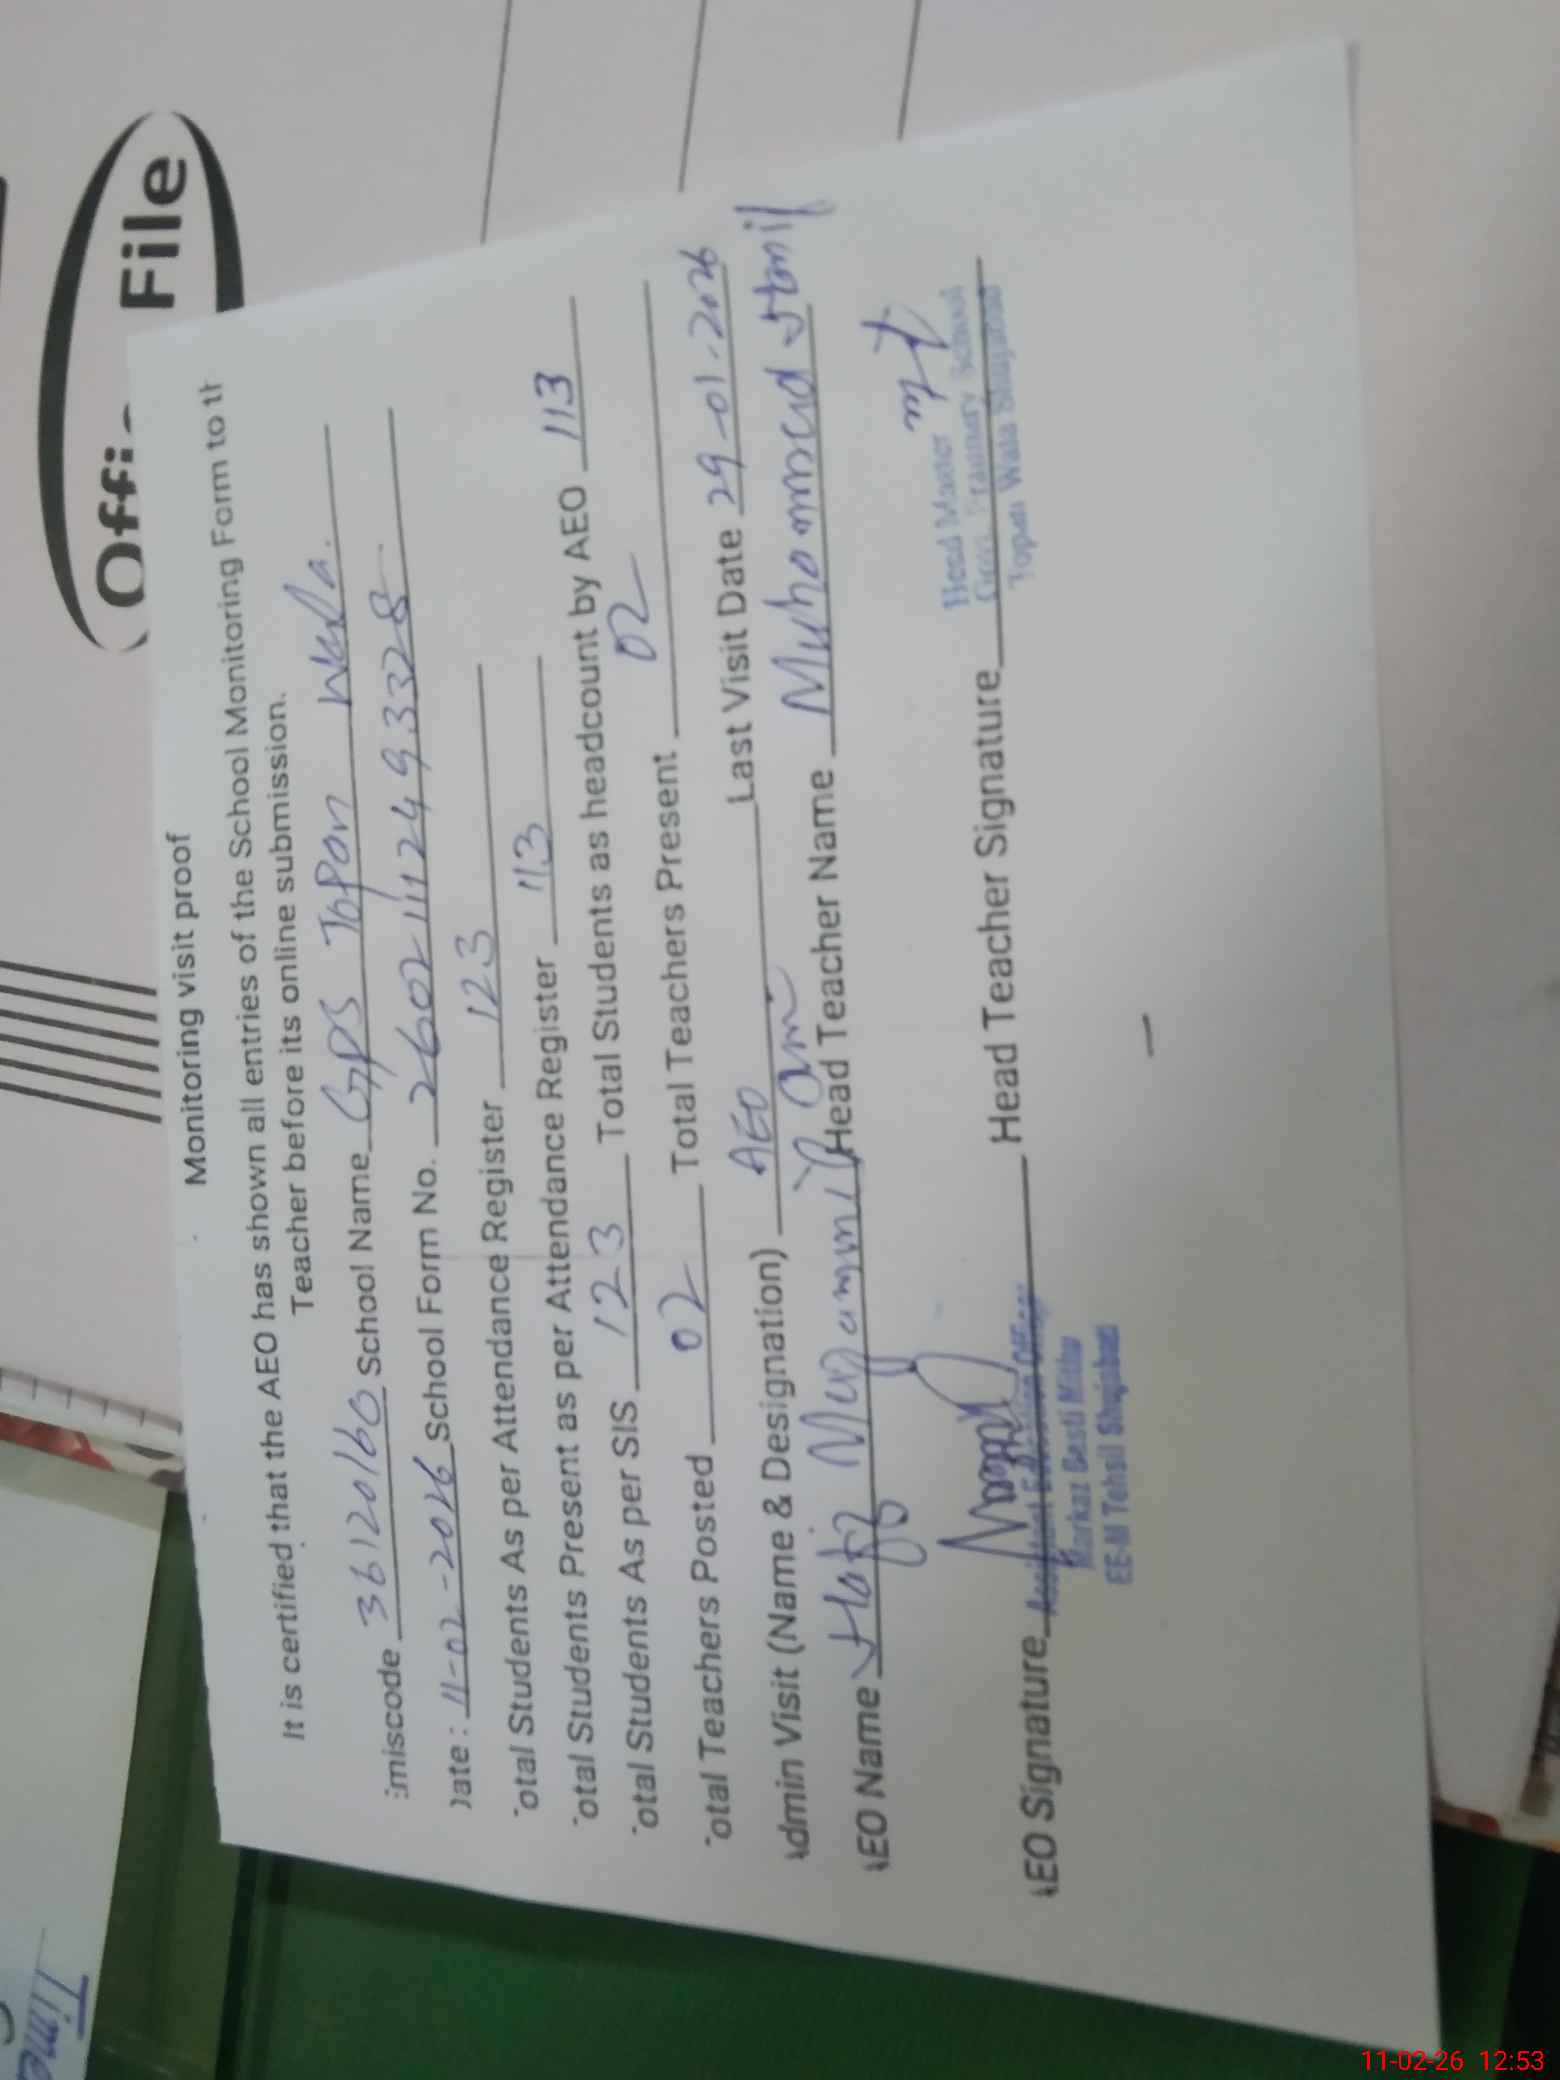 Offi
File
Monitoring visit proof
It is certified that the AEO has shown all entries of the School Monitoring Form to th
Teacher before its online submission.
miscode 36120160 School Name GPS Topan Wala.
ate: 11-02-2026 School Form No. 2602111249.3328
otal Students As per Attendance Register 123
otal Students Present as per Attendance Register 113
otal Students As per SIS 123 Total Students as headcount by AEO 113
otal Teachers Posted 02 Total Teachers Present 02
dmin Visit (Name & Designation) AEO Last Visit Date 29-01-2026
EO Name Hafiz Head Teacher Name Muhammad
EO Signature Head Teacher Signature
Head Master
Govt. Primary School
Topan Wala Shujabad
Assistant Education Officer
Markaz Basti Mithu
EE-M Tehsil Shujabad
Time
11-02-26 12:53